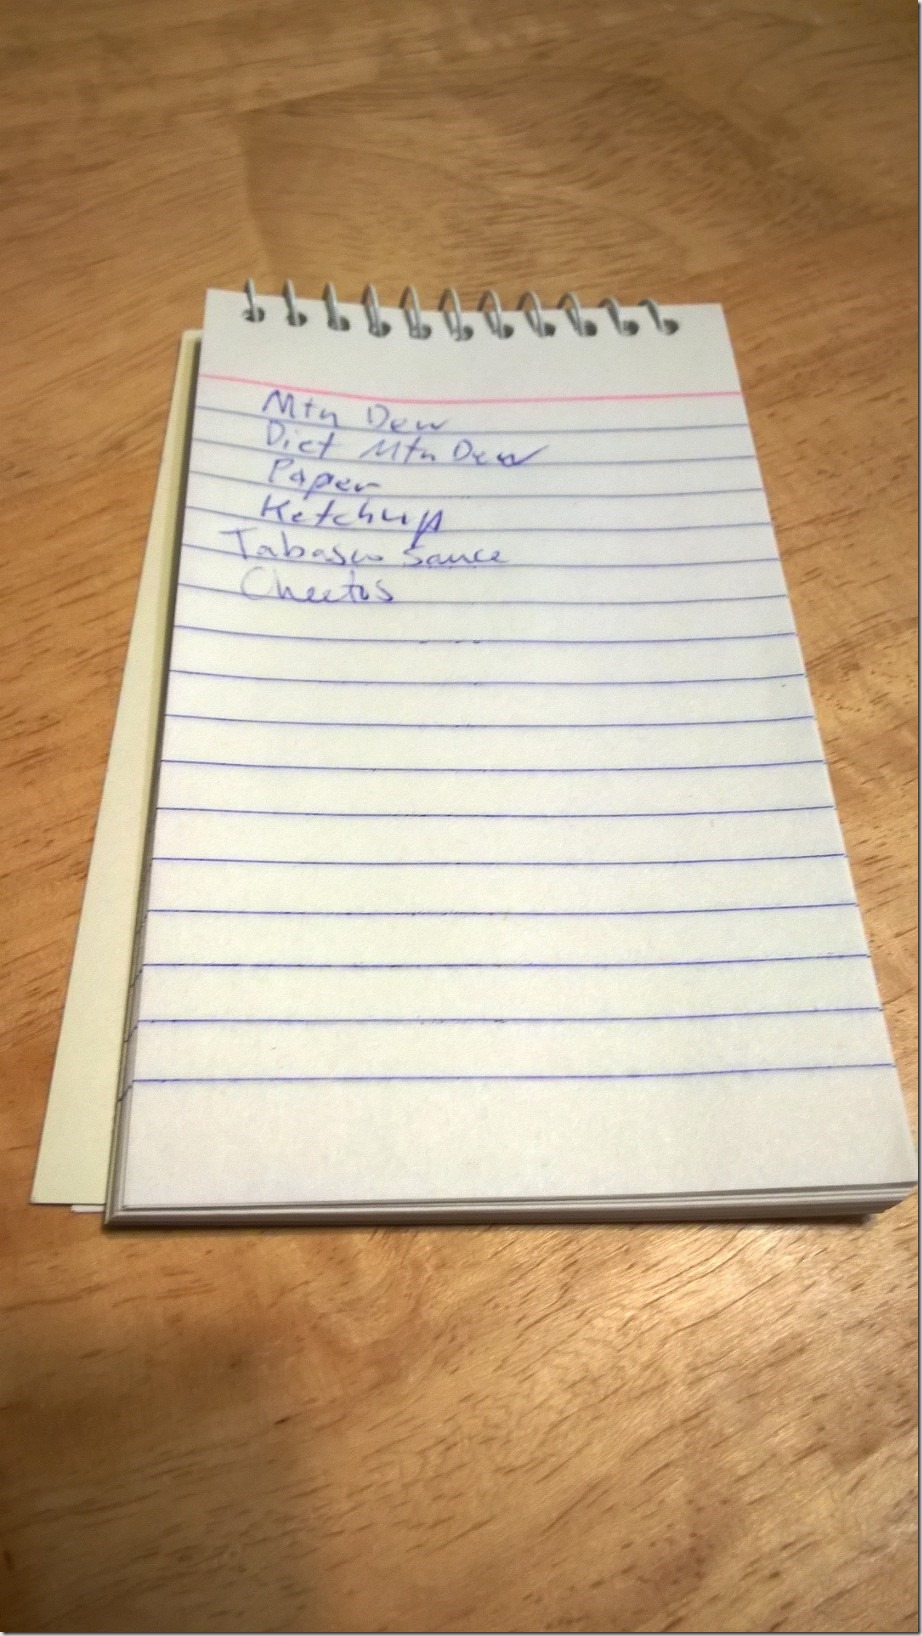 Mtn Dew
Diet Mtn Dew
Paper
Ketchup
Tabasco Sauce
Cheetos